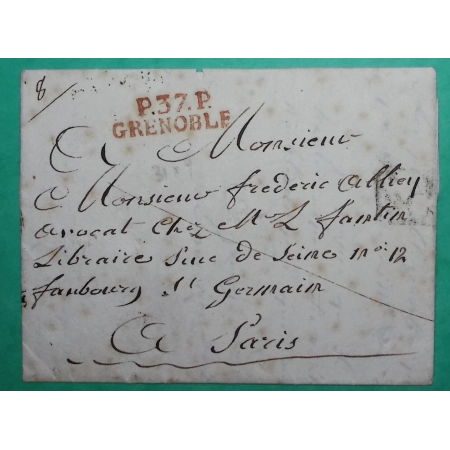 8
P.37.P.
GRENOBLE
A Monsieur
Monsieur frederic
avocat chez Mr L fantin
Libraire Rue de Seine no. 12
faubourg St Germain
A Paris